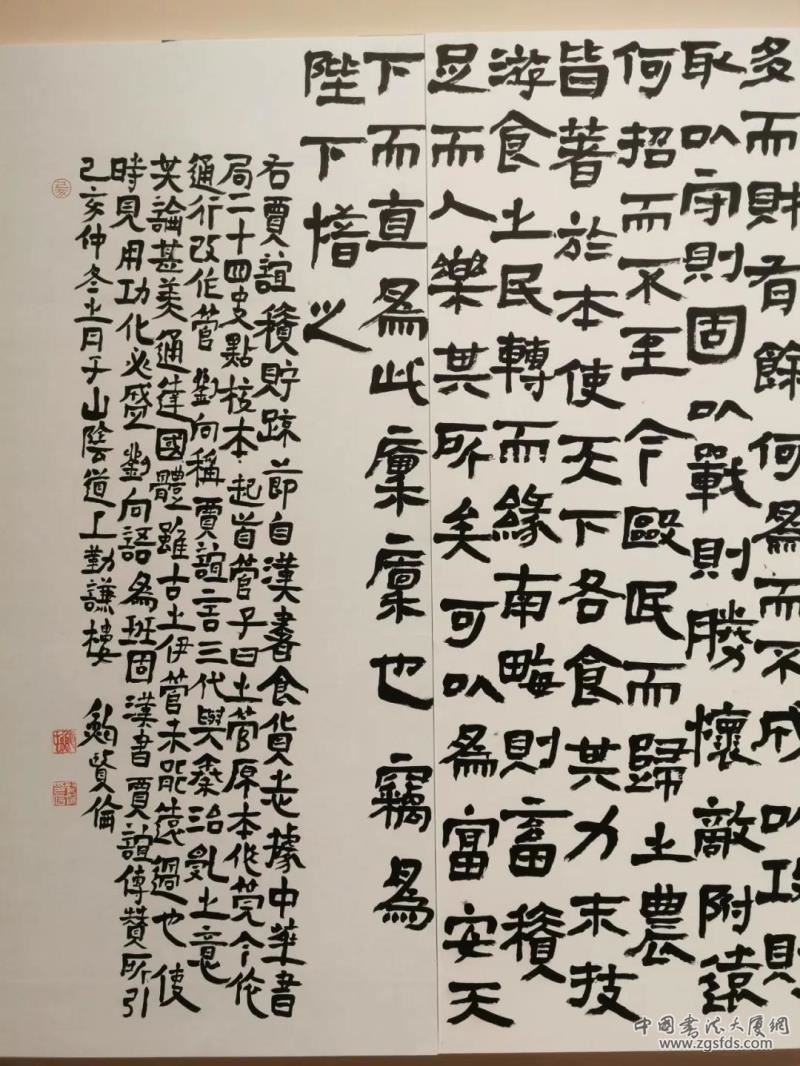 多而財有餘何為而不成以攻則
取以守則固以戰則勝懷敵附遠
何招而不至今毆民而歸之農
皆著於本使天下各食其力末技
游食之民轉而緣南畮則畜積
足而人樂其所矣可以為富安天
下而直為此廩廩也竊為
陛下惜之
右賈誼積貯疏節自漢書食貨志據中華書
局二十四史點校本起首管子曰之管原本作筦今依
通行改作管劉向稱賈誼言三代與秦治亂之意
其論甚美通達國體雖古之伊管未能遠過也使
時見用功化必盛劉向語為班固漢書賈誼傳贊所引
己亥仲冬之月于山陰道上勤謙樓 鮑賢倫
中國書法大廈網
www.zgsfds.com